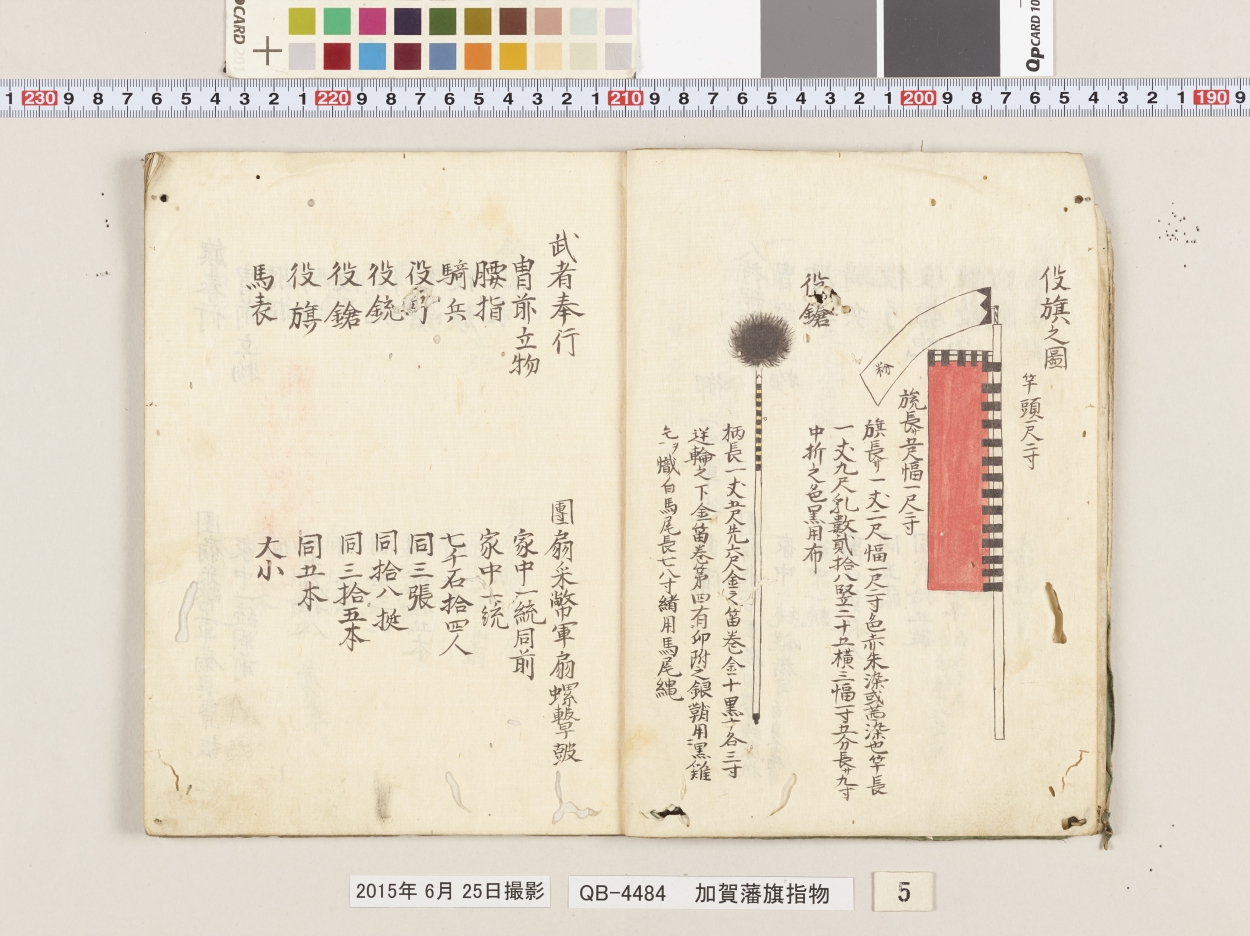 QpCARD
QpCARD 10
1 230 9 8 7 6 5 4 3 2 1 220 9 8 7 6 5 4 3 2 1 210 9 8 7 6 5 4 3 2 1 200 9 8 7 6 5 4 3 2 1 190 9
役旗之圖
竿頭一尺二寸
粉
旗長サ一丈二尺幅一尺二寸色赤朱染或茜染也竿長
一丈九尺乳數貳拾八竪二十五横三幅一寸五分長サ九寸
中折之色黒用布
役鎗
柄長一丈五尺先六尺金之笛巻金十黒十各三寸
逆輪之下金笛巻第四有卯附之銀鞘用黒雞
白馬尾長七八寸緒用馬尾縄
武者奉行
團扇采幣軍扇螺撃皷
冑前立物
家中一統同前
腰指
家中一統
騎兵
七千石拾四人
役弓
同三張
役銃
同拾八挺
役鎗
同三拾五本
役旗
同五本
馬表
大小
2015年 6月 25日撮影
QB-4484 加賀藩旗指物
5